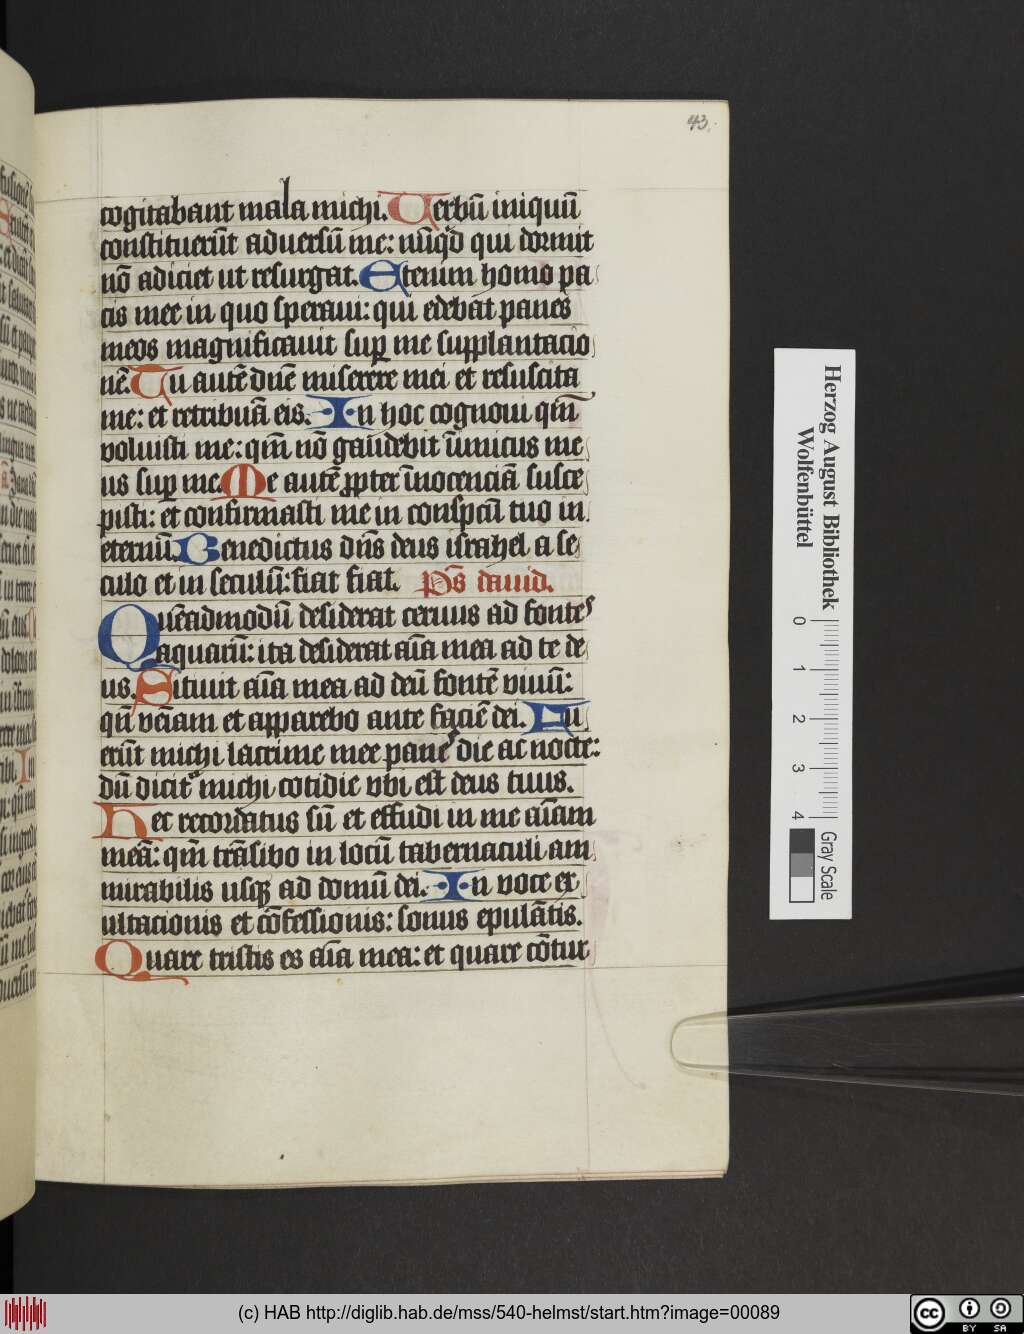 43.
cogitabant mala michi. Uerbū iniquū
constituerūt aduersū me: nūqd qui dormit
nō adiciet ut resurgat. Etenim homo pa
cis mee in quo speraui: qui edebat panes
meos magnificauit sup me supplantacio
nē. Tu autē dn̄e miserere mei et resuscita
me: et retribuā eis. In hoc cognoui qm̄
voluisti me: qm̄ nō gaudebit inimicus me
us sup me. Me autē ꝓpter īnocenciā susce
pisti: et confirmasti me in conspcū tuo in
eternū. Benedictus dn̄s deus israhel a se
culo et in seculū: fiat fiat. Ps̄ dauid.
Quēadmodū desiderat ceruus ad fontes
aquarū: ita desiderat aīa mea ad te de
us. Sitiuit aīa mea ad deū fontē viuū:
qn̄ veniam et apparebo ante faciē dei. Fu
erūt michi lacrime mee panes die ac nocte:
dū dicitʳ michi cotidie vbi est deus tuus.
Hec recordatus sū et effudi in me aīam
meā: qm̄ trāsibo in locū tabernaculi am
mirabilis usqꝫ ad domū dei. In voce ex
ultacionis et cōfessionis: sonus epulātis.
Quare tristis es aīa mea: et quare cōtur
Herzog August Bibliothek
Wolfenbüttel
0 1 2 3 4
Gray Scale
(c) HAB http://diglib.hab.de/mss/540-helmst/start.htm?image=00089
cc BY SA